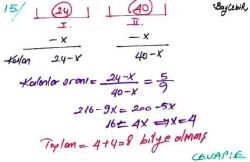 15/ 24 40 Baycebir
I. II.
-x -x
Kalan 24-x 40-x
Kalanlar oranı = 24-x / 40-x = 5/9
216-9x = 200-5x
16 = 4x ⇒ x = 4
Toplam = 4+4=8 bilye alınmış
CEVAP: E